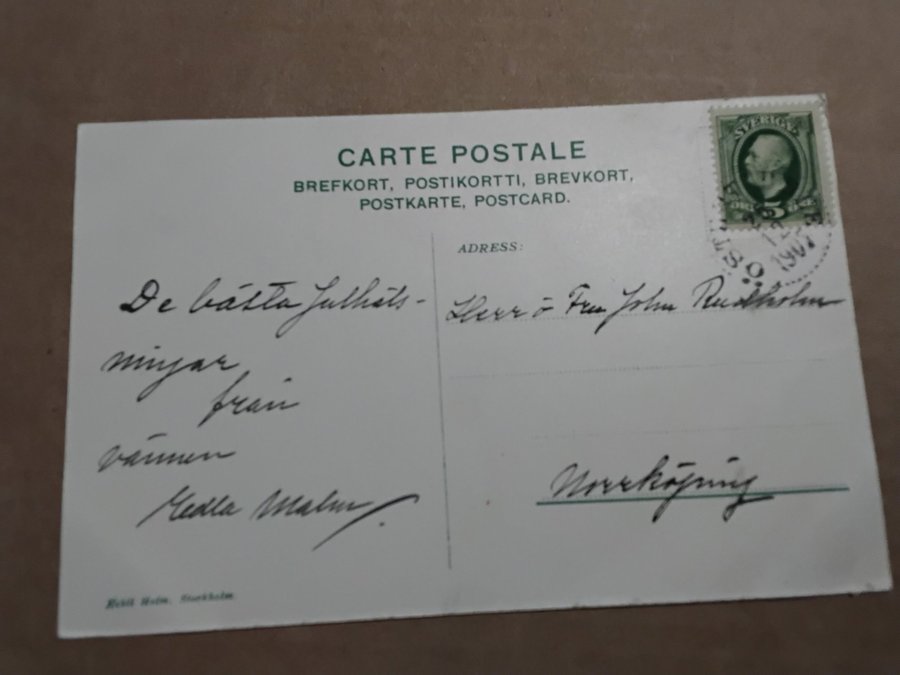 CARTE POSTALE
BREFKORT, POSTIKORTTI, BREVKORT,
POSTKARTE, POSTCARD.
SVERIGE
5
1907
ADRESS:
De bästa Julhäls-
ningar
från
vännen
Hedla Malm.
Herr o Fru John Rudholm
Norrköping
Holm, Stockholm.